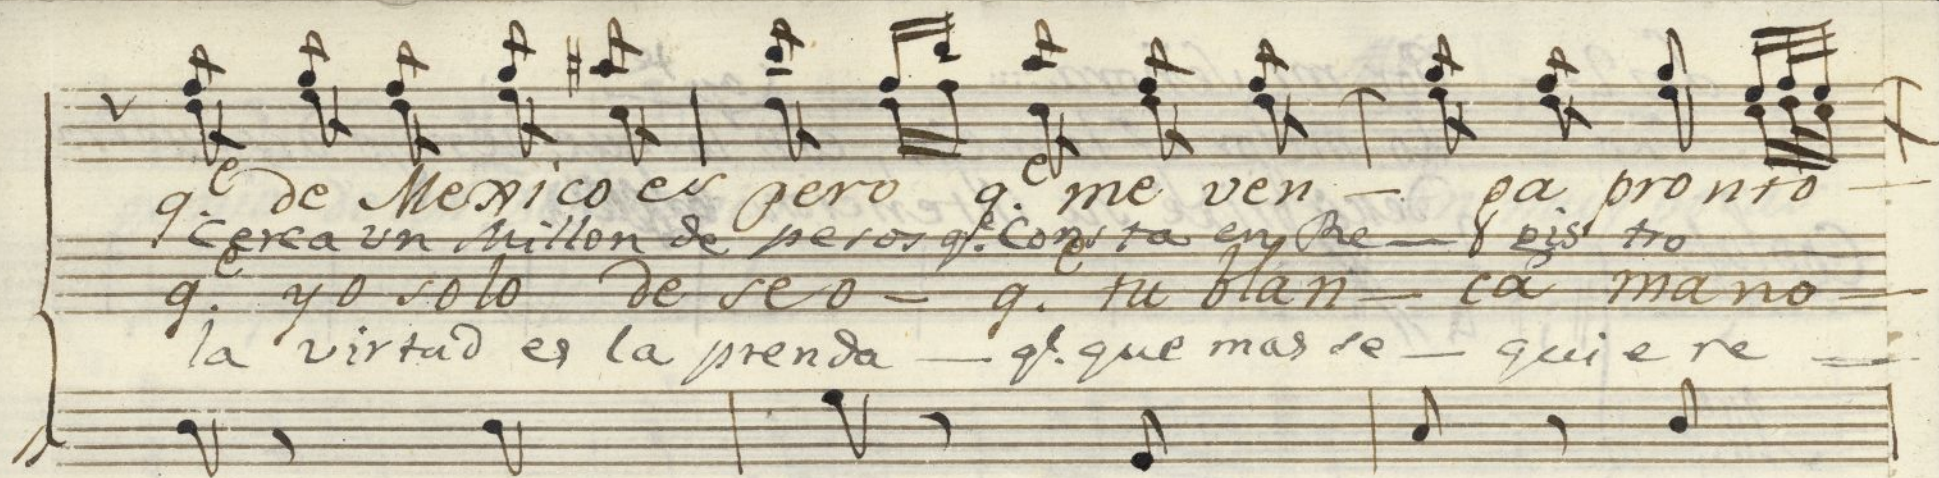 q.e de Mexico es pero q.e me ven - ga pronto -
Cerca un Millon de pesos qe. Consta en Re - gis tro
q.e yo solo de seo - q.e tu blan - ca mano -
la virtud es la prenda - qe. que mas se - quie re -